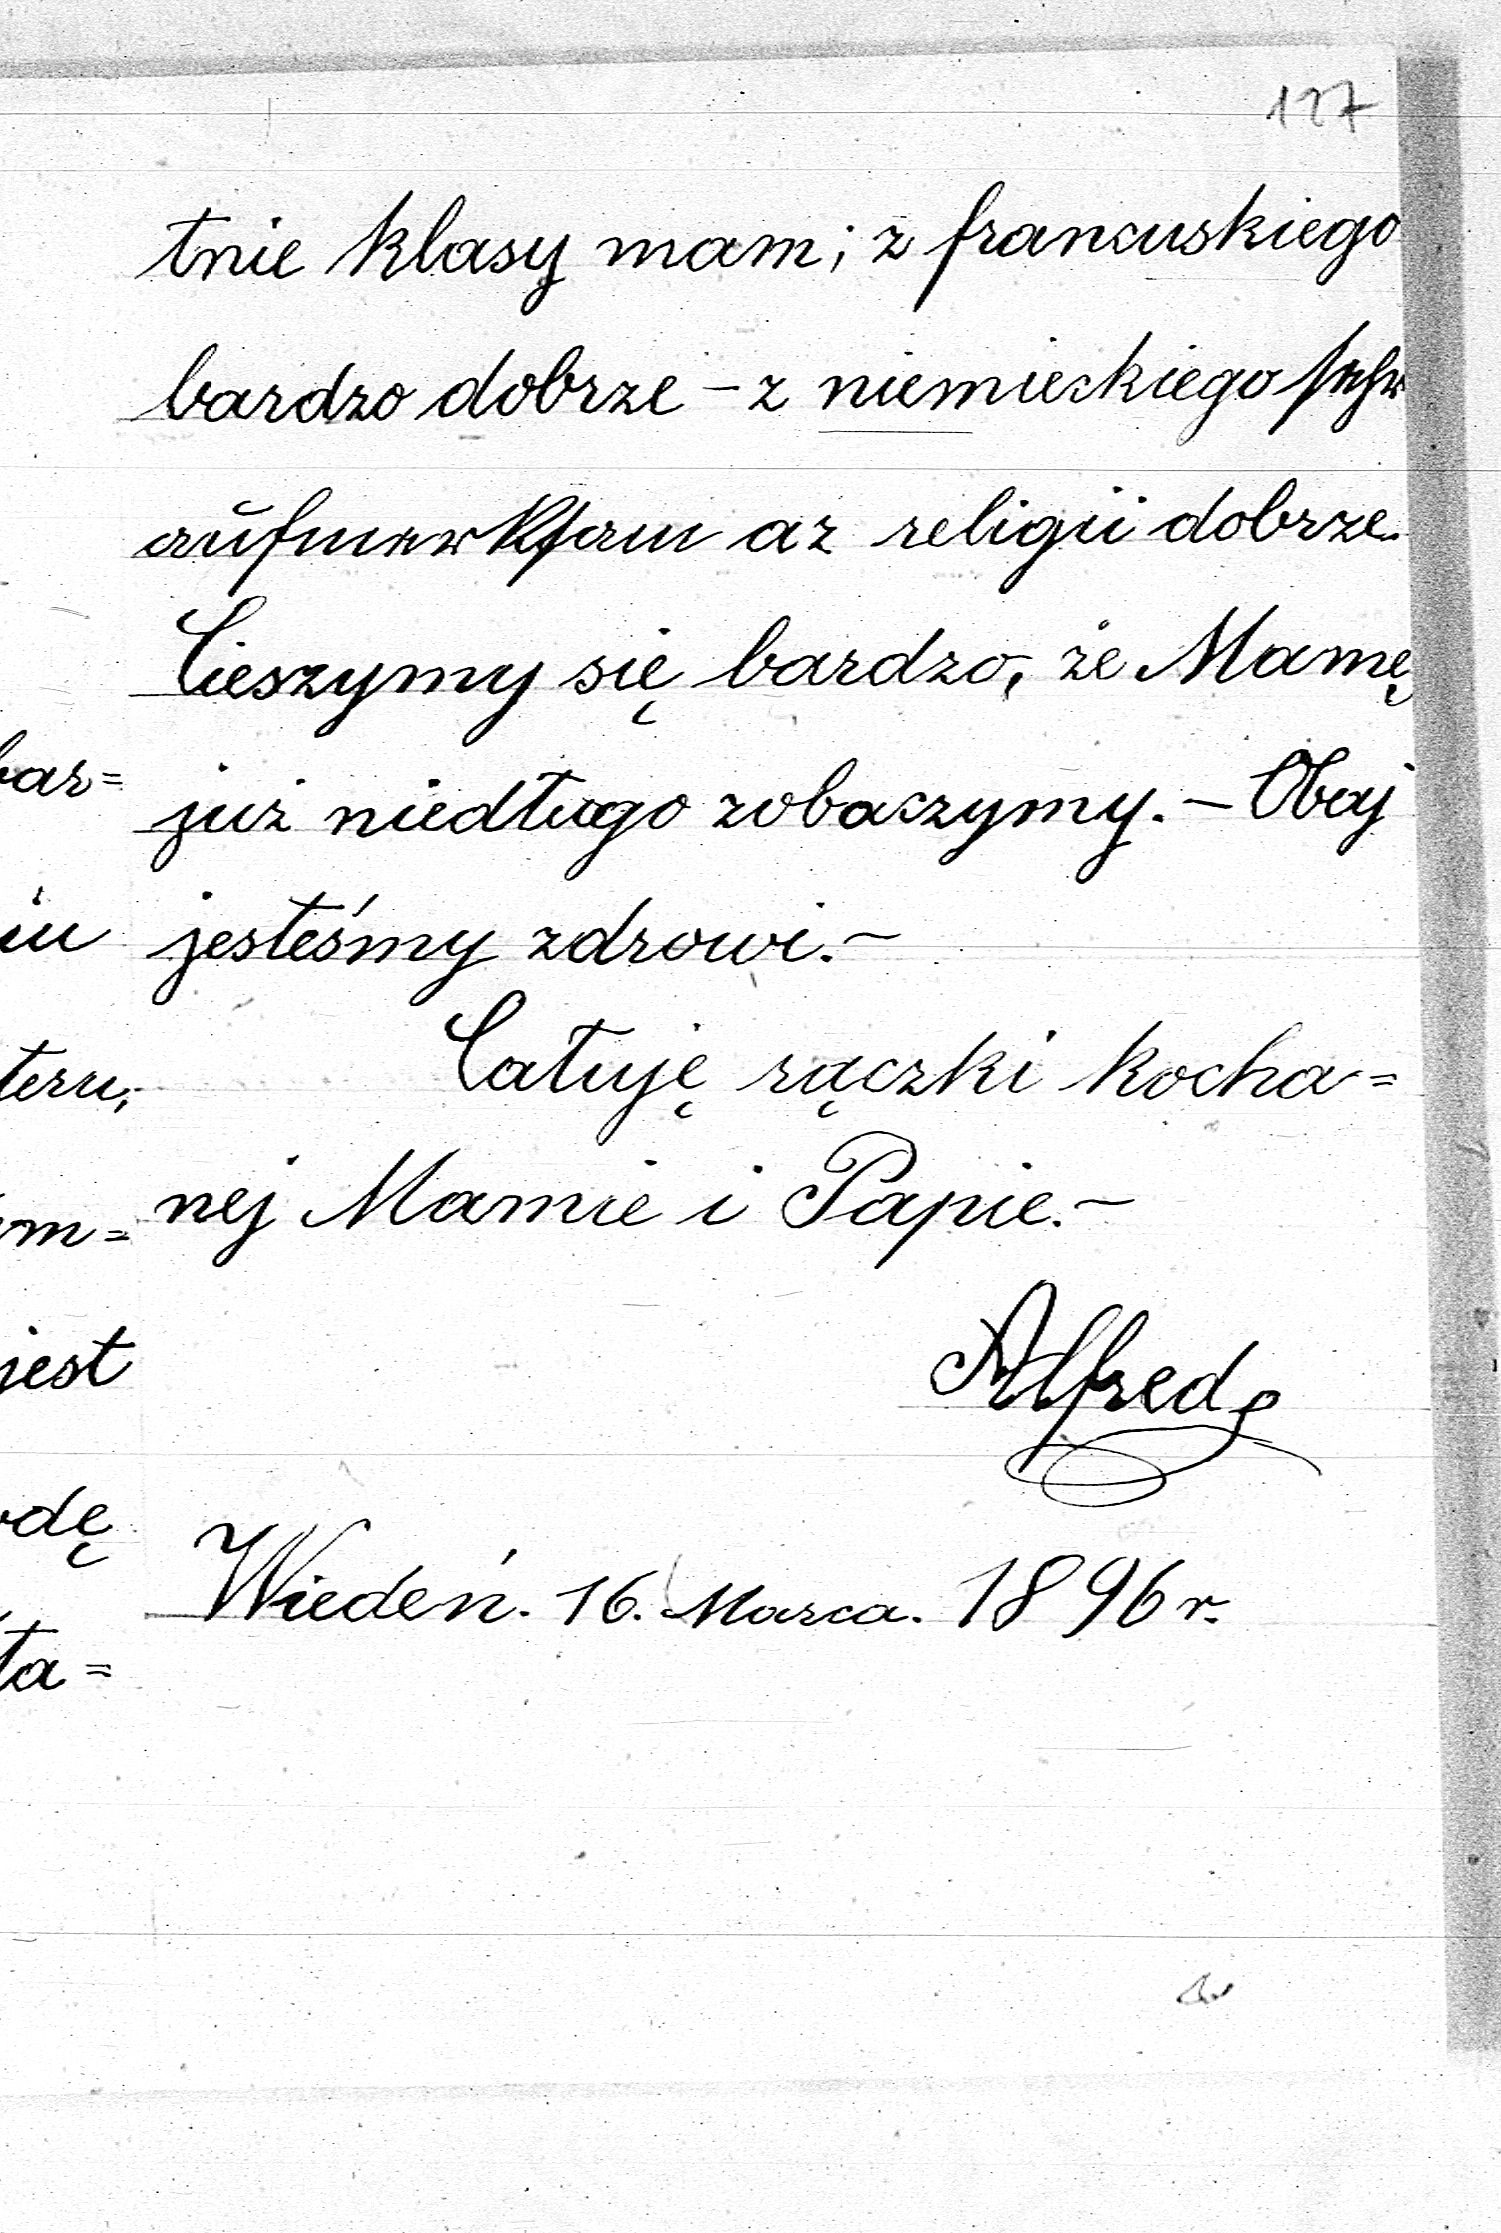 127
tnie klasy mam; z francuskiego
bardzo dobrze – z niemieckiego sehr
aufmerksam a z religii dobrze.
Cieszymy się bardzo, że Mamę
już niedługo zobaczymy. – Obaj
jesteśmy zdrowi. –
Całuję rączki kocha=
nej Mamie i Papie. –
Alfred
Wiedeń. 16. Marca. 1896 r.
bar=
teru,
jest
dę
ta=